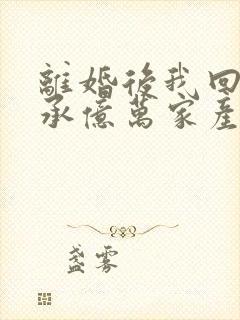 離婚後我回
承億萬家產
盞雾